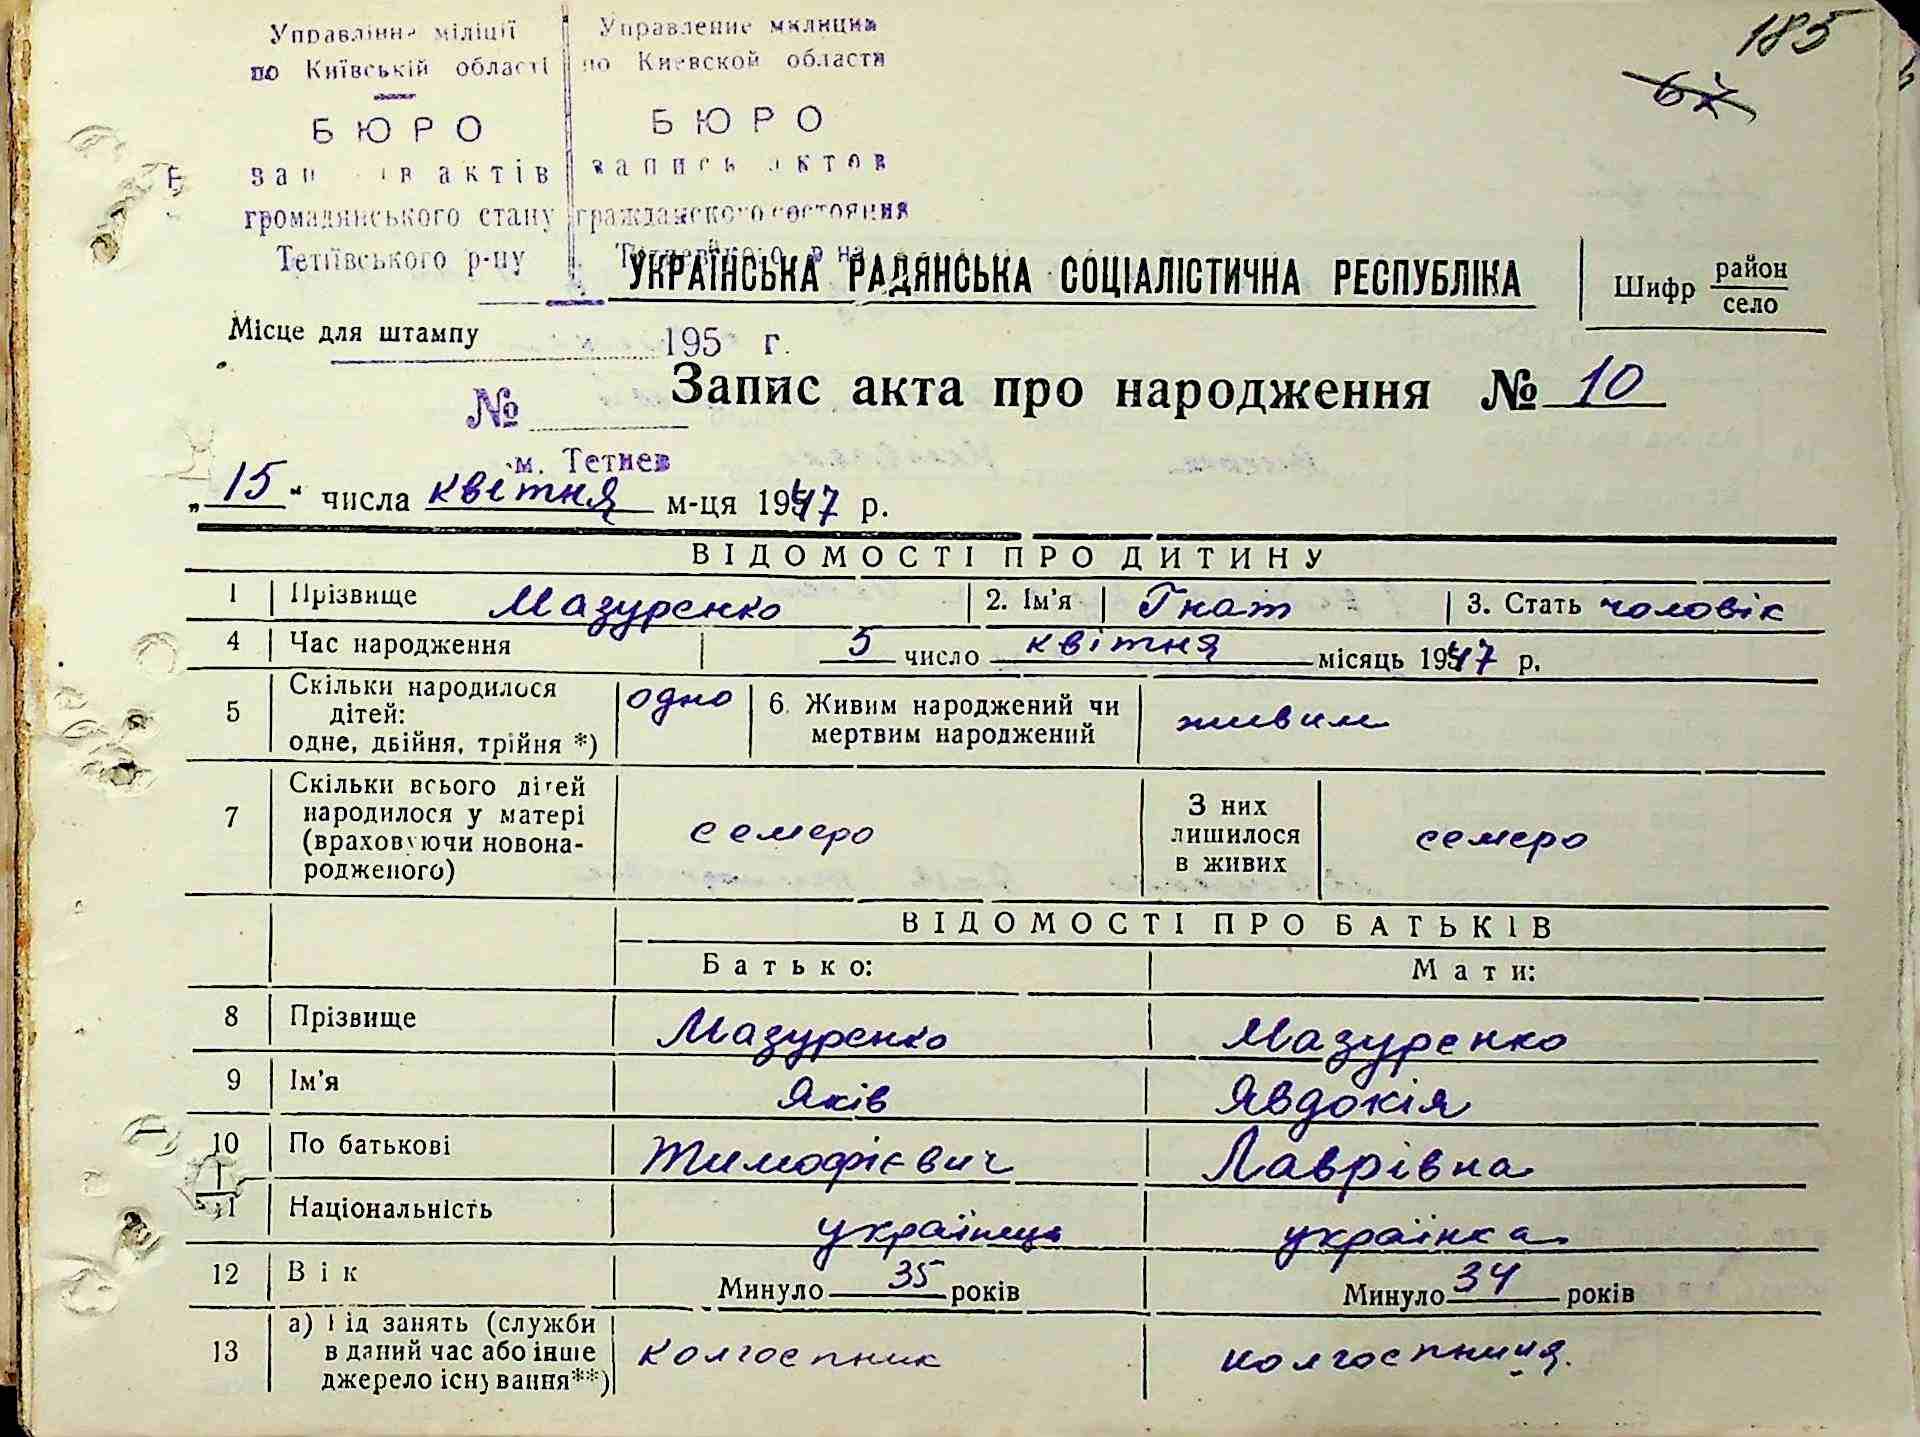 185
67
Управління міліції
по Київській області
БЮРО
записів актів
громадянського стану
Тетіївського р-ну
Управление милиции
по Киевской области
БЮРО
запись актов
гражданского состояния
Тетиевского р на
УКРАЇНСЬКА РАДЯНСЬКА СОЦІАЛІСТИЧНА РЕСПУБЛІКА
Шифр район
село
Місце для штампу
195 г.
Запис акта про народження № 10
№
м. Тетиев
„15“ числа квітня м-ця 1947 р.
ВІДОМОСТІ ПРО ДИТИНУ
1 Прізвище Мазуренко 2. Ім'я Гнат 3. Стать чоловік
4 Час народження 5 число квітня місяць 1947 р.
5 Скільки народилося
дітей:
одне, двійня, трійня *) одно 6. Живим народжений чи
мертвим народжений живим
7 Скільки всього дітей
народилося у матері
(враховуючи новона-
родженого) семеро З них
лишилося
в живих семеро
ВІДОМОСТІ ПРО БАТЬКІВ
Батько: Мати:
8 Прізвище Мазуренко Мазуренко
9 Ім'я Яків Явдокія
10 По батькові Тимофієвич Лаврівна
11 Національність українець українка
12 Вік Минуло 35 років Минуло 34 років
13 а) Під занять (служби
в даний час або інше
джерело існування**) колгоспник колгоспниця.